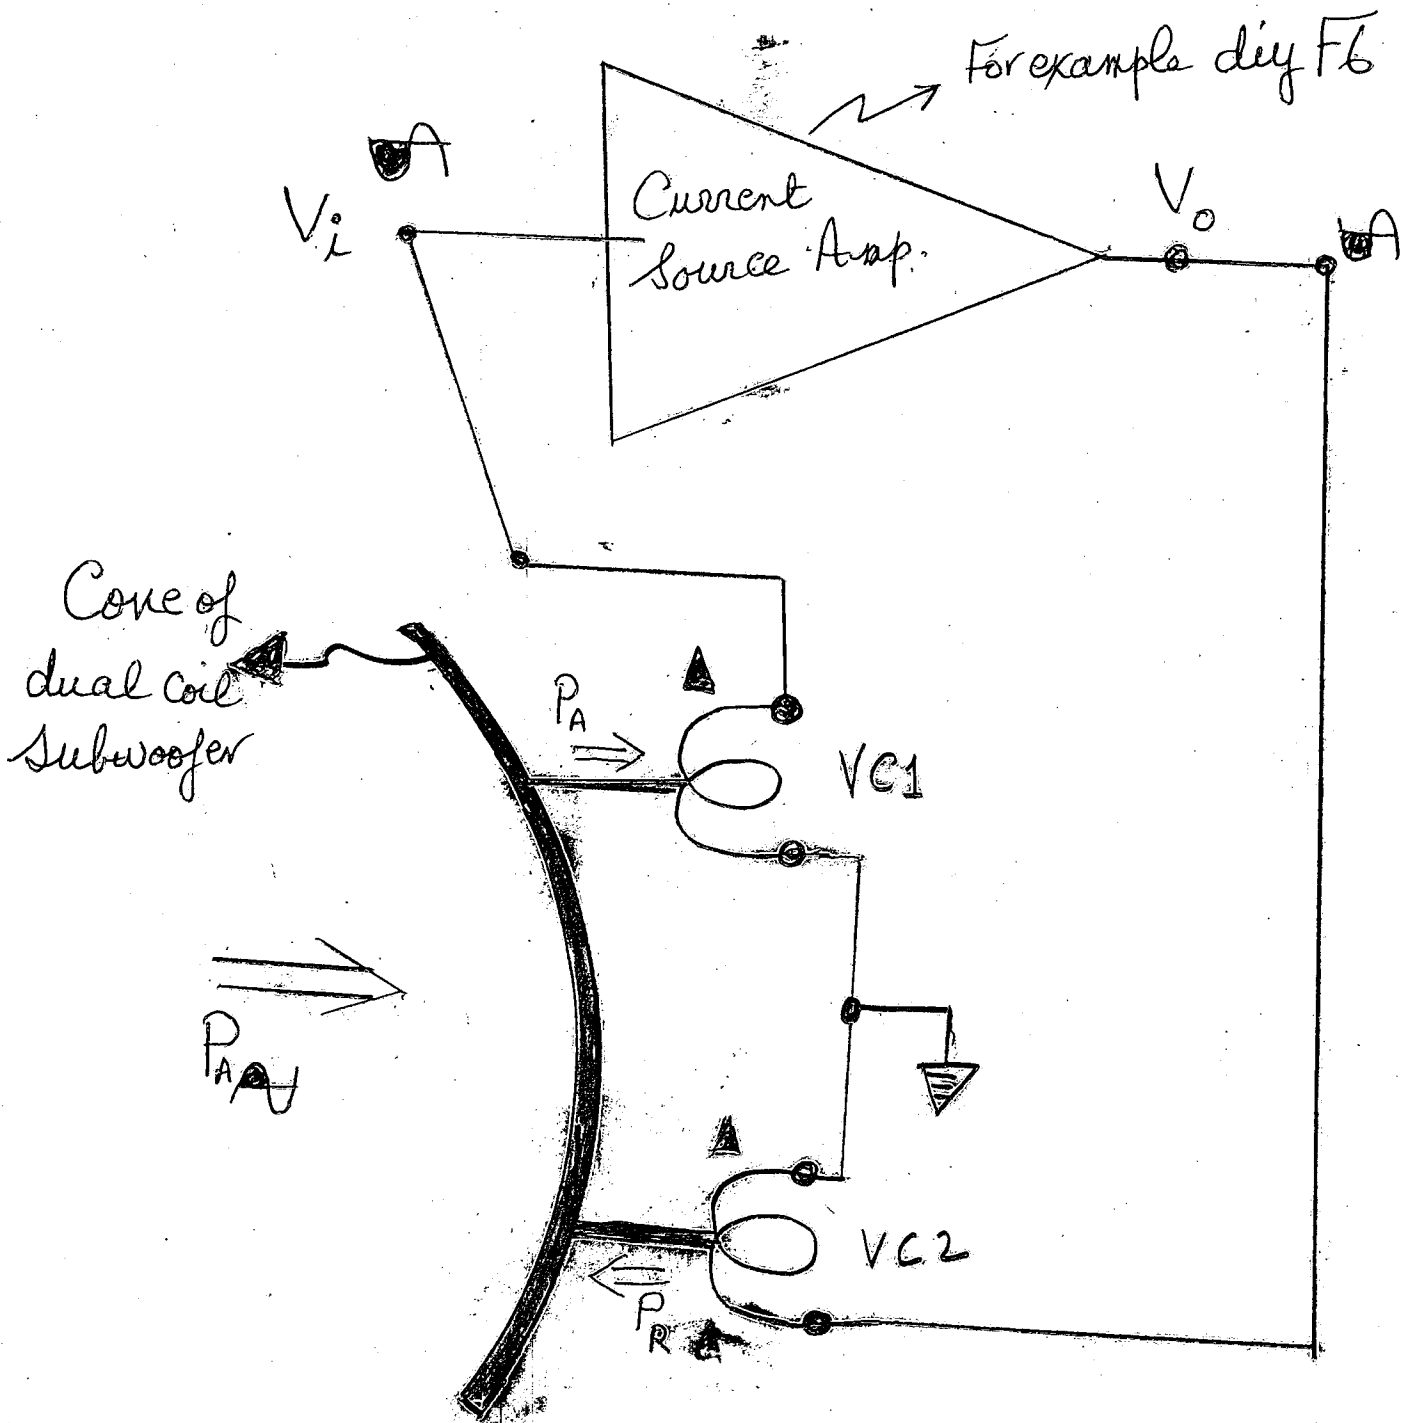 For example diy F6
Vi
Current
Source Amp.
Vo
Cone of
dual coil
Subwoofer
PA
VC1
PA
VC2
PR